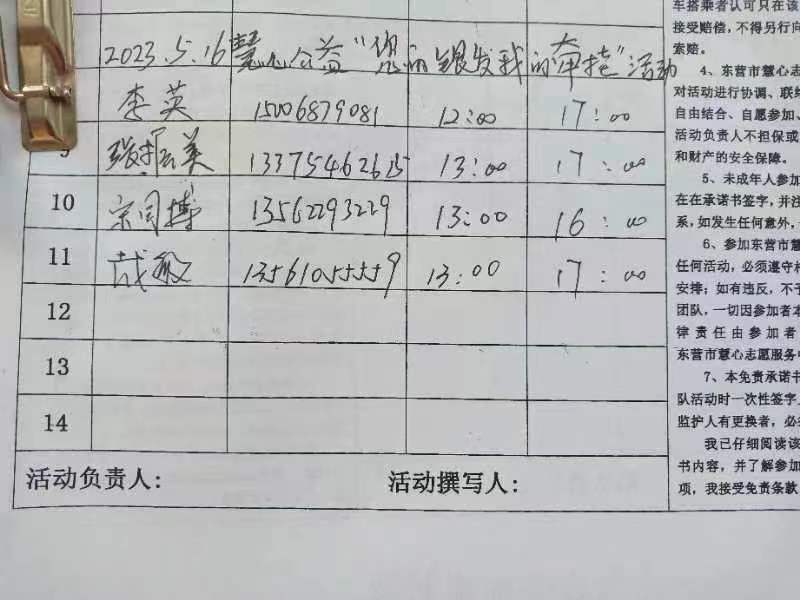 2023.5.16慧心公益“您的银发我的牵挂”活动
李英 15006879081 12:00 17:00
9 张振美 13375462615 13:00 17:00
10 宗同博 13562293229 13:00 16:00
11 13561055559 13:00 17:00
12
13
14
活动负责人: 活动撰写人:
车搭乘者认可只在该
接受赔偿,不得另行向
索赔。
4、东营市慧心志
对活动进行协调、联络
自由结合、自愿参加、
活动负责人不担保或
和财产的安全保障。
5、未成年人参加
在在承诺书签字,并注
系,如发生任何意外,
6、参加东营市慧
任何活动,必须遵守相
安排;如有违反,不予
团队,一切因参加者本
律责任由参加者
东营市慧心志愿服务中
7、本免责承诺书
队活动时一次性签字
监护人有更换者,必须
我已仔细阅读该
书内容,并了解参加
项,我接受免责条款